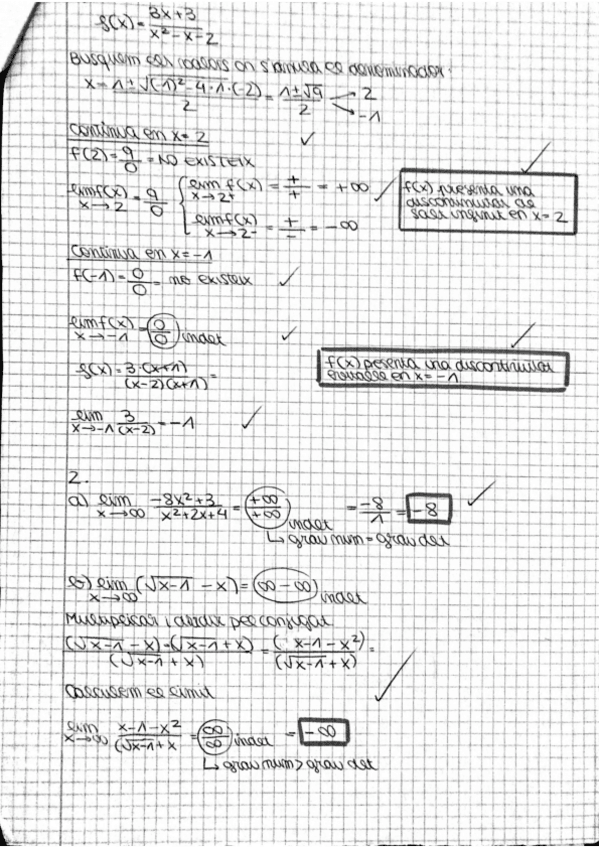 f(x) = (3x+3)/(x²-x-2)
Busquem els valors on s'anul·la el denominador:
x = (1 ± √((1)²-4·1·(-2)))/2 = (1±√9)/2 → 2
→ -1
Contínua en x=2
f(2) = 9/0 = NO EXISTEIX
lim f(x) x→2 = 9/0 { lim f(x) x→2+ = +/+ = +∞
lim f(x) x→2- = +/- = -∞
f(x) presenta una
discontinuitat de
salt infinit en x=2
Contínua en x=-1
f(-1) = 0/0 = no existeix
lim f(x) x→-1 = 0/0 indet
f(x) = 3·(x+1)/((x-2)(x+1)) =
f(x) pesenta una discontinuitat
evitable en x=-1
lim x→-1 3/(x-2) = -1
2.
a) lim x→∞ (-8x²+3)/(x²+2x+4) = +∞/+∞ indet = -8/1 = -8
↳ grau num = grau det
b) lim x→∞ (√x-1 - x) = ∞-∞ indet
Multiplicar i dividir pel conjugat
(√x-1 - x)·(√x-1 + x)/(√x-1 + x) = (x-1-x²)/(√x-1 + x) =
Calculem el límit
lim x→∞ (x-1-x²)/(√x-1 + x = ∞/∞ indet = -∞
↳ grau num > grau det